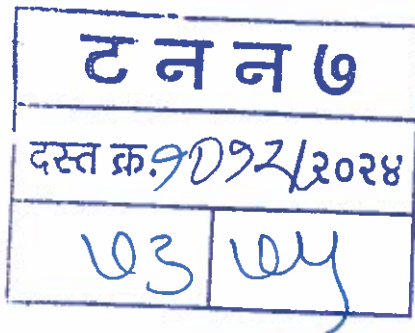 ट न न ७
दस्त क्र.१०१२/२०२४
७३ ७५